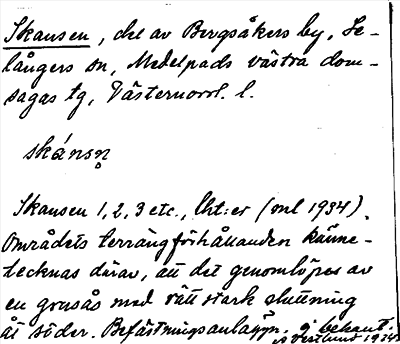 Skansen, del av Bergsåkers by, Se-
långers sn, Medelpads västra dom-
sagas tg, Västernorrl. l.
skánsn̥
Skansen 1, 2, 3 etc., lht:er (onl 1934).
Områdets terrängförhållanden känne-
tecknas därav, att det genomlöpes av
en grusås med rätt stark sluttning
åt söder. Befästningsanläggn. ej bekant.
Vestlund 1934